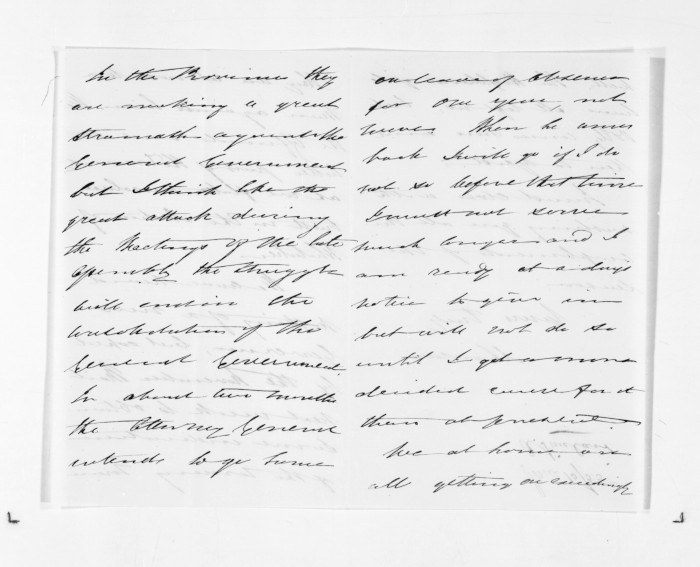 In the Province they
are making a great
stramash against the
General Government
but I think like the
great attack during
the Meetings of the late
Assembly the struggle
will end in the
consolidation of the
General Government.
In about two months
the Attorney General
intends to go home
on leave of absence
for one year, not
more. When he comes
back I will go if I do
not so before that time
I must not serve
much longer and I
am ready at a days
notice to give in
but will not do so
until I get a more
decided cause for it
than at present.
We at home are
all getting on exceedingly